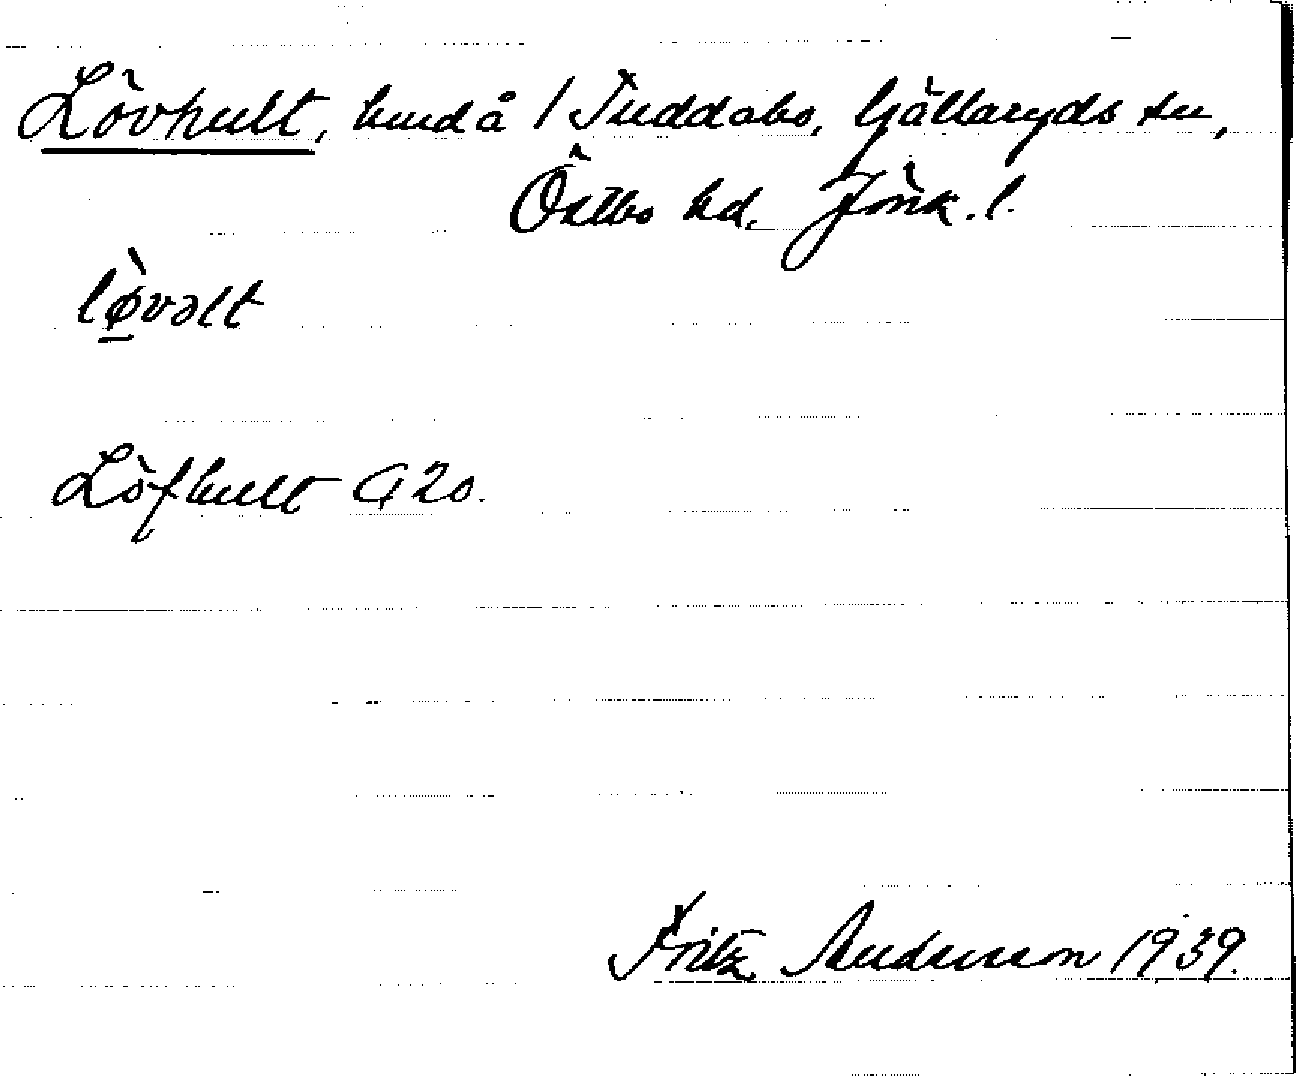 Lövhult, hmd å 1 Tuddabo, Gällaryds sn,
Östbo hd. Jönk. l.
lø̀vəlt
Löfhult G 20.
Fritz Andersson 1939.